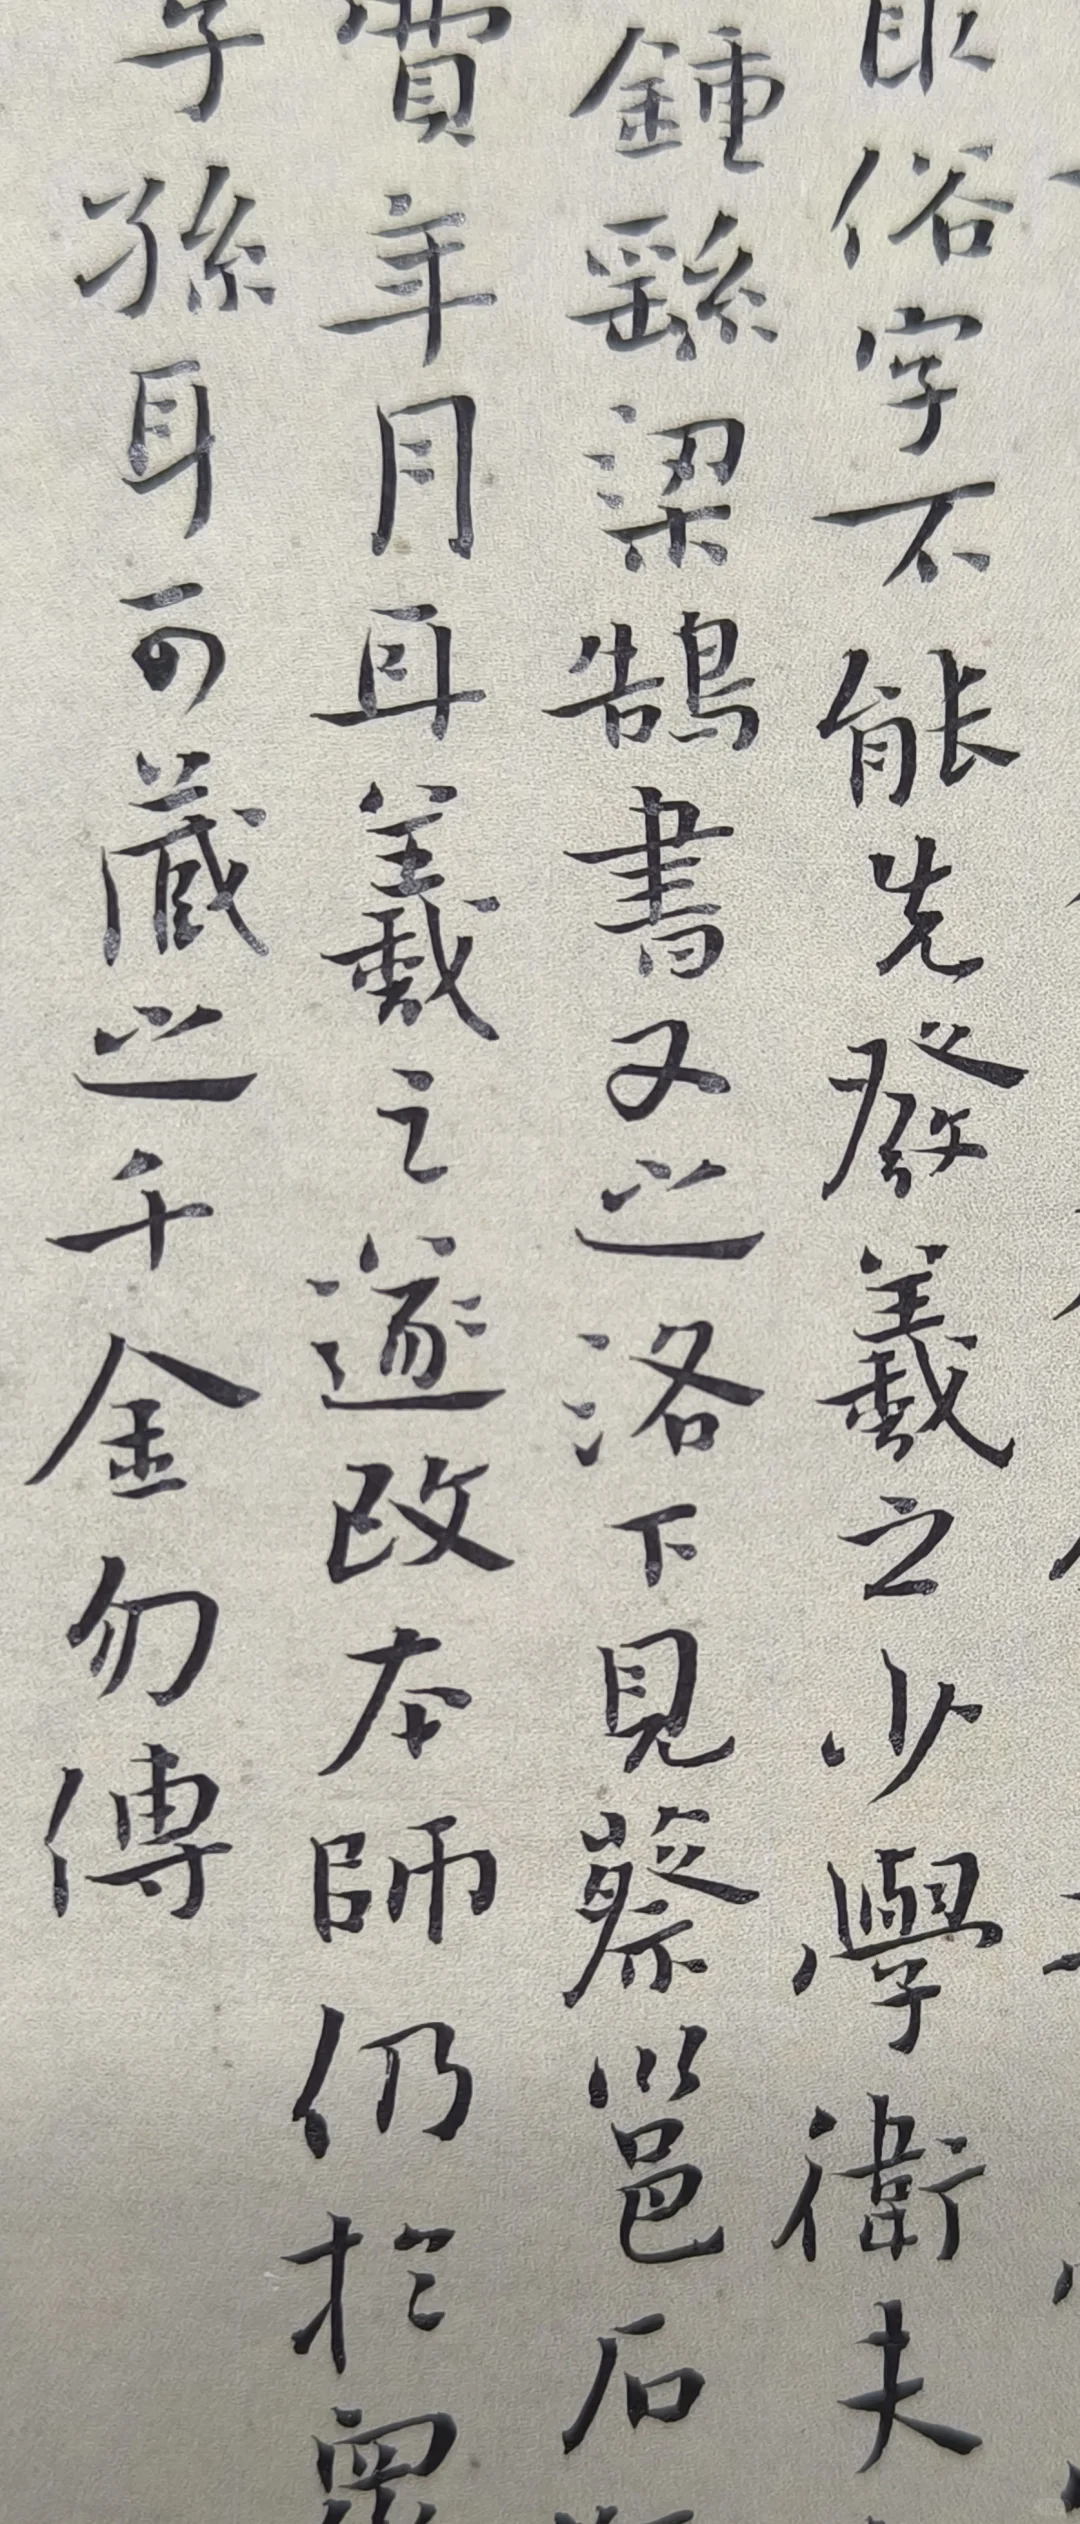 取俗字不能先發羲之少學衛夫
鍾繇梁鵠書又之洛下見蔡邕石
費年月耳羲之遂改本師仍於眾
子孫耳可藏之千金勿傳